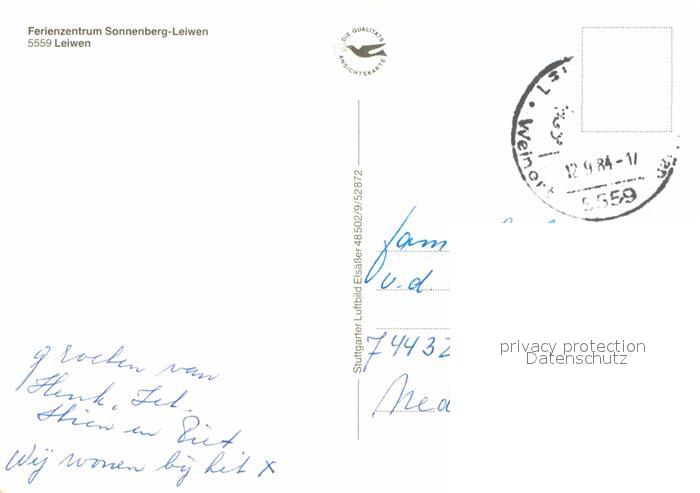 Ferienzentrum Sonnenberg-Leiwen
5559 Leiwen
DIE QUALITÄTS
ANSICHTSKARTE
Weinort
12.9.84-17
5559
Stuttgarter Luftbild Elsäßer 48502/9/52872
fam
v.d.
74432
Ned
privacy protection
Datenschutz
groeten van
Henk,
Stien en Piet
Wij wonen bij het x